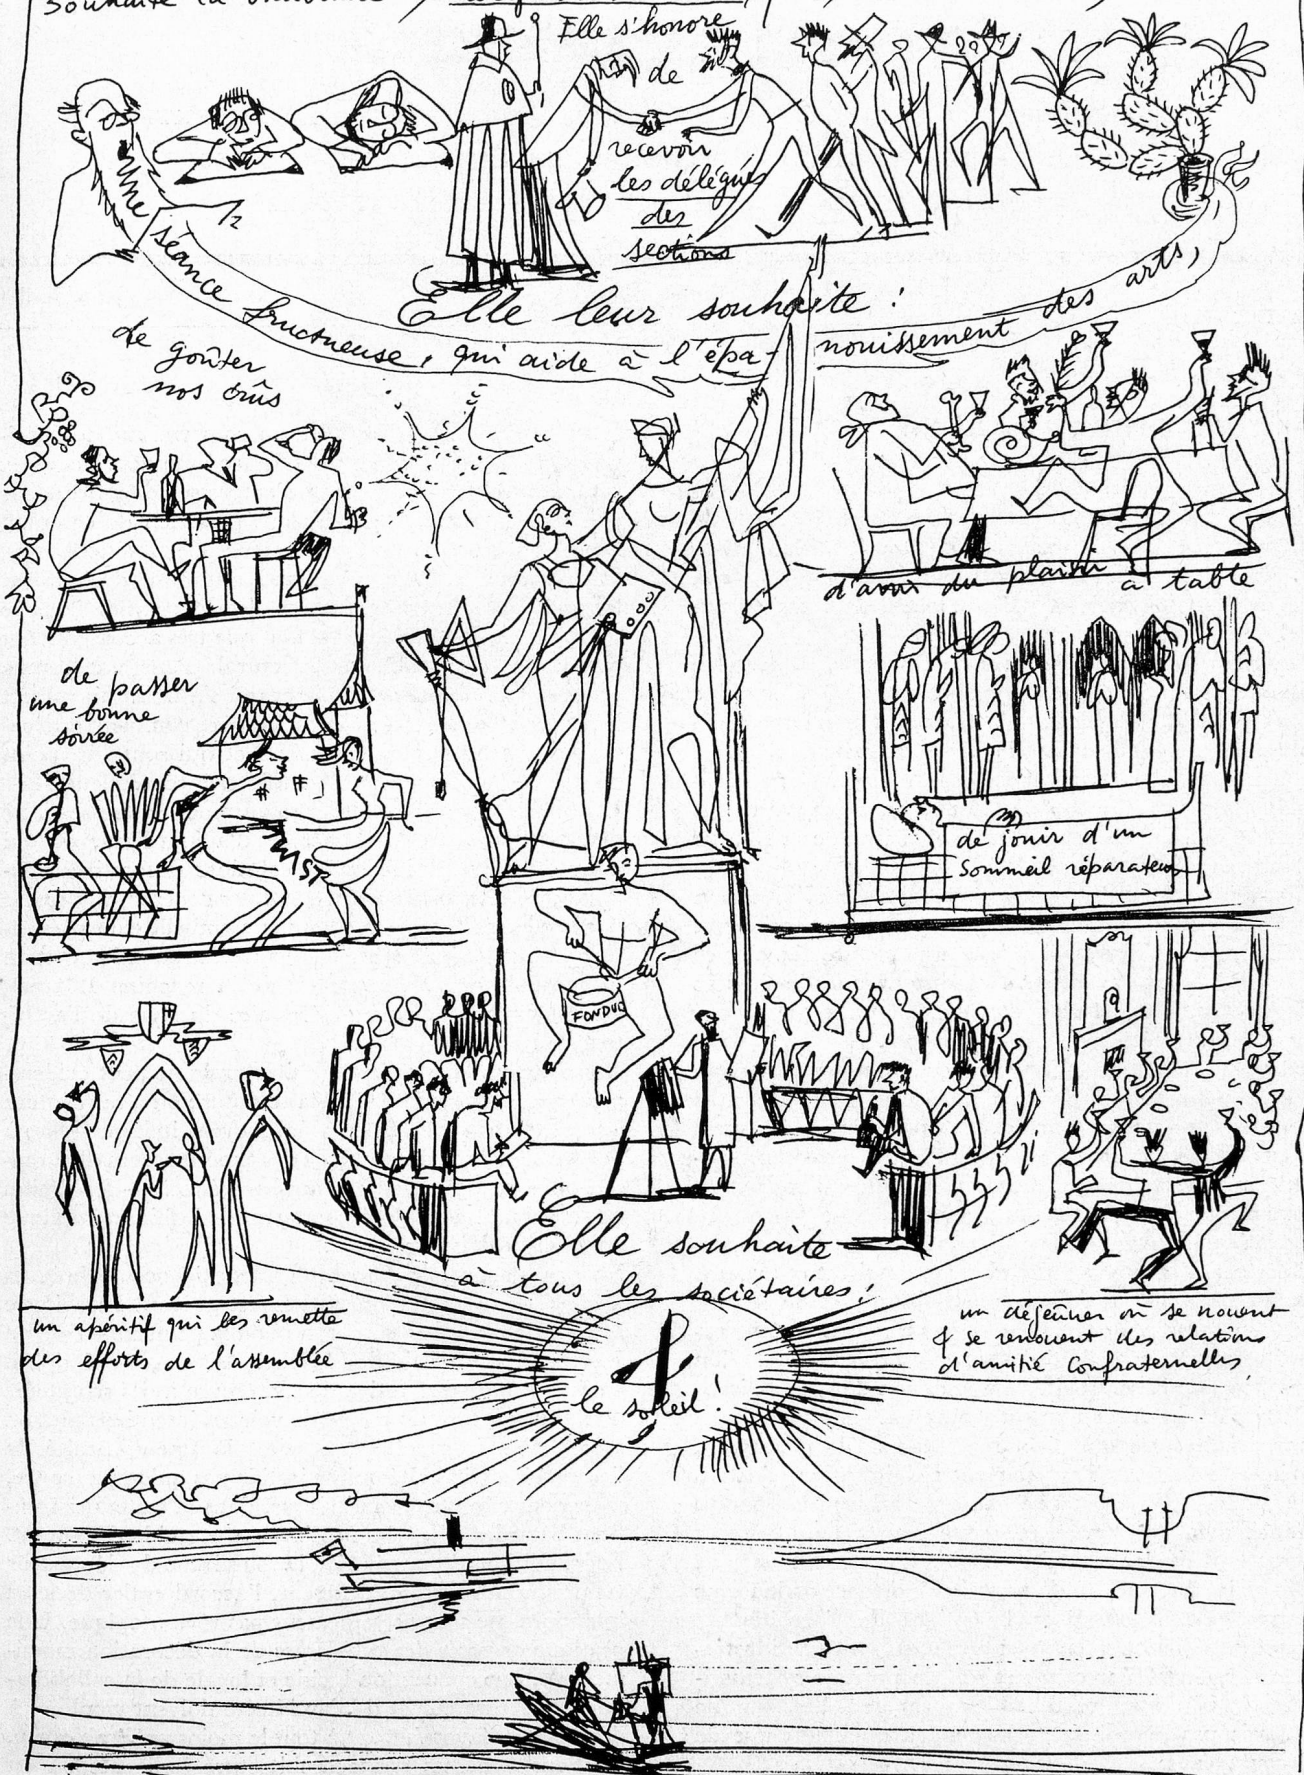 Souhaite la
Elle s'honore
de
recevoir
les délégués
des
sections
Elle leur souhaite :
une séance fructueuse, qui aide à l'épa-
nouissement des arts,
de goûter
nos crûs
d'avoir du plaisir à table
de passer
une bonne
soirée
de jouir d'un
Sommeil réparateur
FONDUE
Elle souhaite
à tous les sociétaires :
un apéritif qui les remette
des efforts de l'assemblée
un déjeûner où se nouent
& se renouent des relations
d'amitié Confraternelles,
&
le soleil !